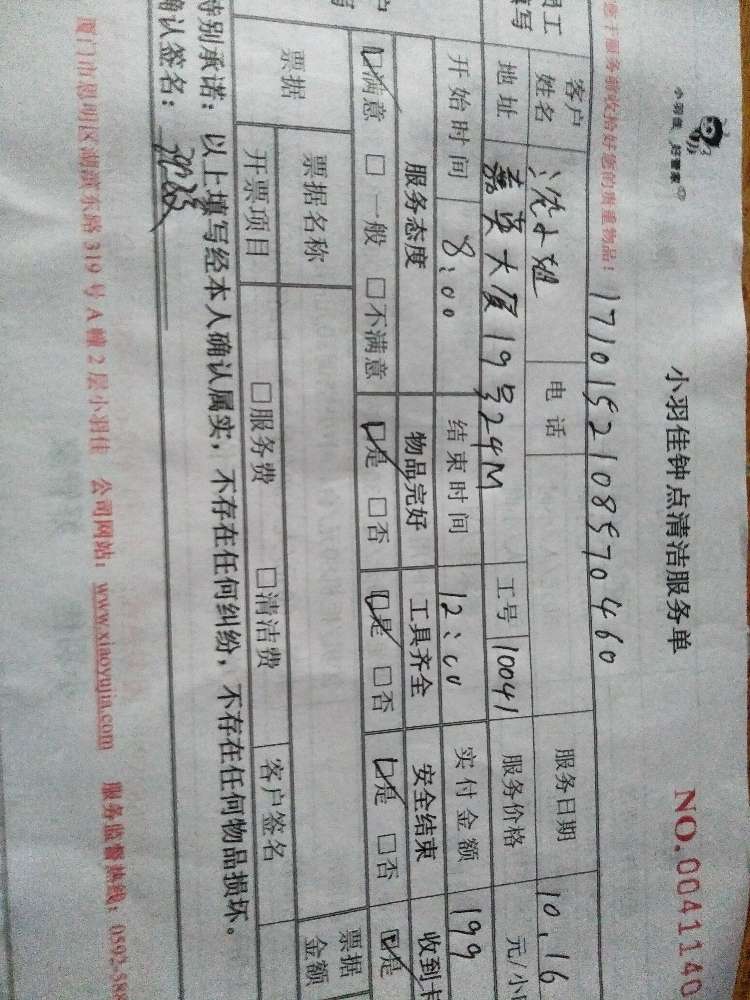 小羽佳 好管家
小羽佳钟点清洁服务单 NO.0041140
您于服务前收拾好您的贵重物品! 17101521085970460
客户姓名 沈小姐 电话 服务日期 10.16
地址 嘉英大厦19号24M 工号 10041 服务价格 元/小
开始时间 8:00 结束时间 12:00 实付金额 199
服务态度 物品完好 工具齐全 安全结束 收到卡
☑满意 □一般 □不满意 ☑是 □否 ☑是 □否 ☑是 □否 ☑是
票据 票据名称 票据金额
开票项目 □服务费 □清洁费 客户签名
特别承诺:以上填写经本人确认属实,不存在任何纠纷,不存在任何物品损坏。
确认签名:
厦门市思明区湖滨东路319号A幢2层小羽佳 公司网站:www.xiaoyujia.com 服务监督热线:0592-588